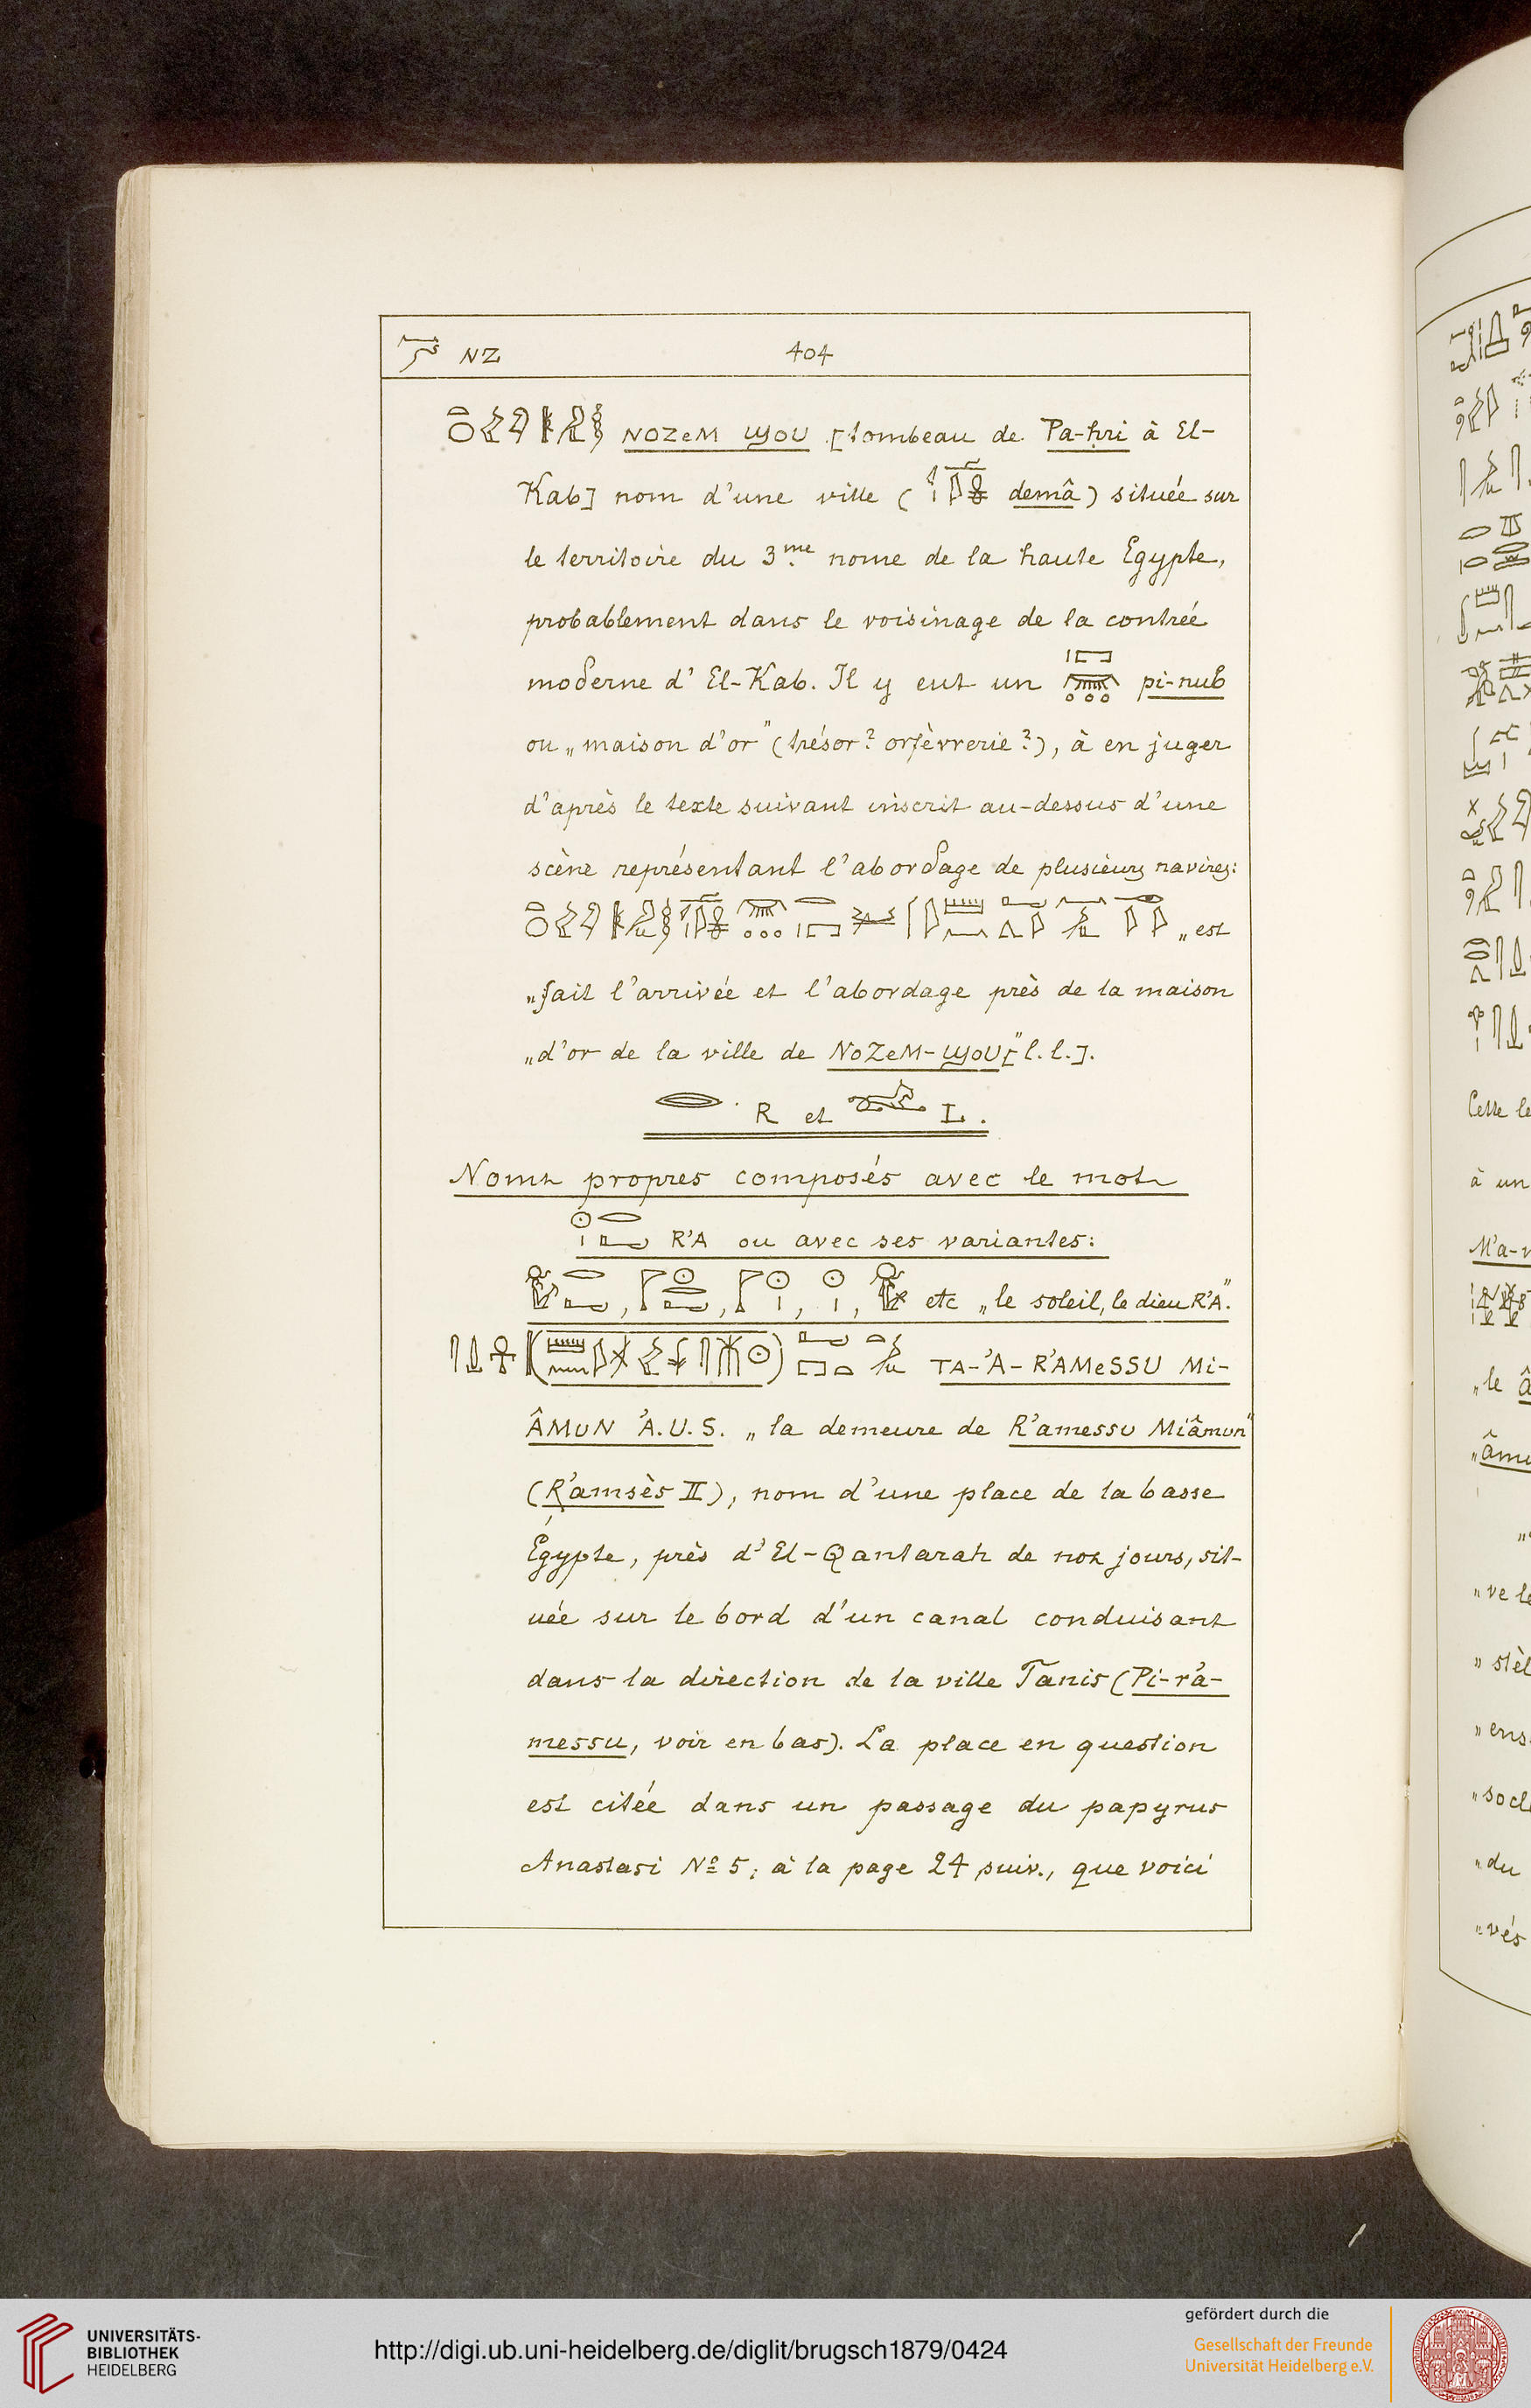 NZ 404
NOZeM ϢOU [tombeau de Pa-ḥri à El-
Kab] nom d'une ville ( demâ) située sur
le territoire du 3me nome de la haute Egypte,
probablement dans le voisinage de la contrée
moderne d'El-Kab. Il y eut un pi-nub
ou „maison d'or" (trésor? orfèvrerie?), à en juger
d'après le texte suivant inscrit au-dessus d'une
scène représentant l'abordage de plusieurs navires:
„est
„fait l'arrivée et l'abordage près de la maison
„d'or de la ville de NOZeM-ϢOU" [l.l.].
R et L.
Noms propres composés avec le mot
R'A ou avec ses variantes:
, , , , etc „le soleil, le dieu R'A".
TA-'A-R'AMeSSU Mi-
ÂMUN 'A.U.S. „la demeure de R'amessu Miâmun"
(R'amsès II), nom d'une place de la basse
Égypte, près d'El-Qantarah de nos jours, sit-
uée sur le bord d'un canal conduisant
dans la direction de la ville Tanis (Pi-r'a-
messu, voir en bas). La place en question
est citée dans un passage du papyrus
Anastasi Nº 5, à la page 24 suiv., que voici
Cette
à un
M'a-
„le
„âm
„ve
„stèl
„ens
„socl
„du
„vés
UNIVERSITÄTS-
BIBLIOTHEK
HEIDELBERG
http://digi.ub.uni-heidelberg.de/diglit/brugsch1879/0424
gefördert durch die
Gesellschaft der Freunde
Universität Heidelberg e.V.